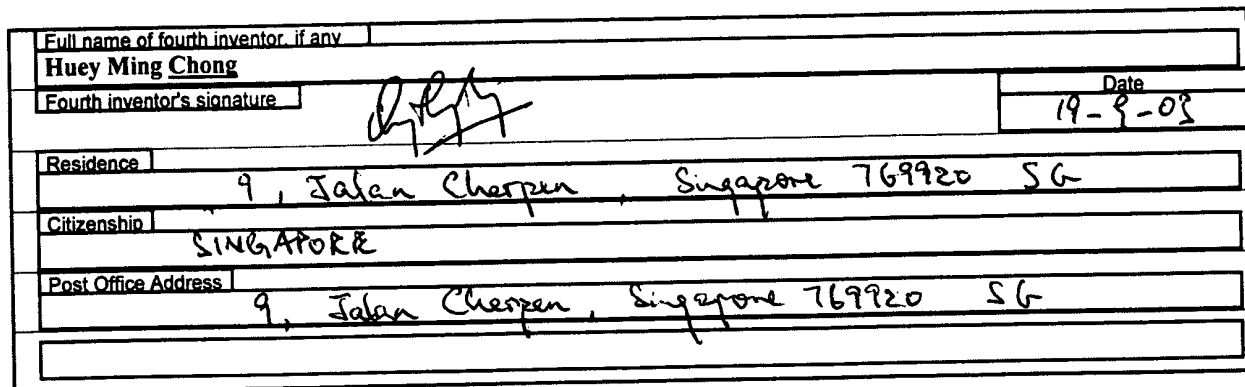 Full name of fourth inventor, if any
Huey Ming Chong
Fourth inventor's signature
Date
19-9-03
Residence
9, Jalan Cherpen, Singapore 769920 SG
Citizenship
SINGAPORE
Post Office Address
9, Jalan Cherpen, Singapore 769920 SG